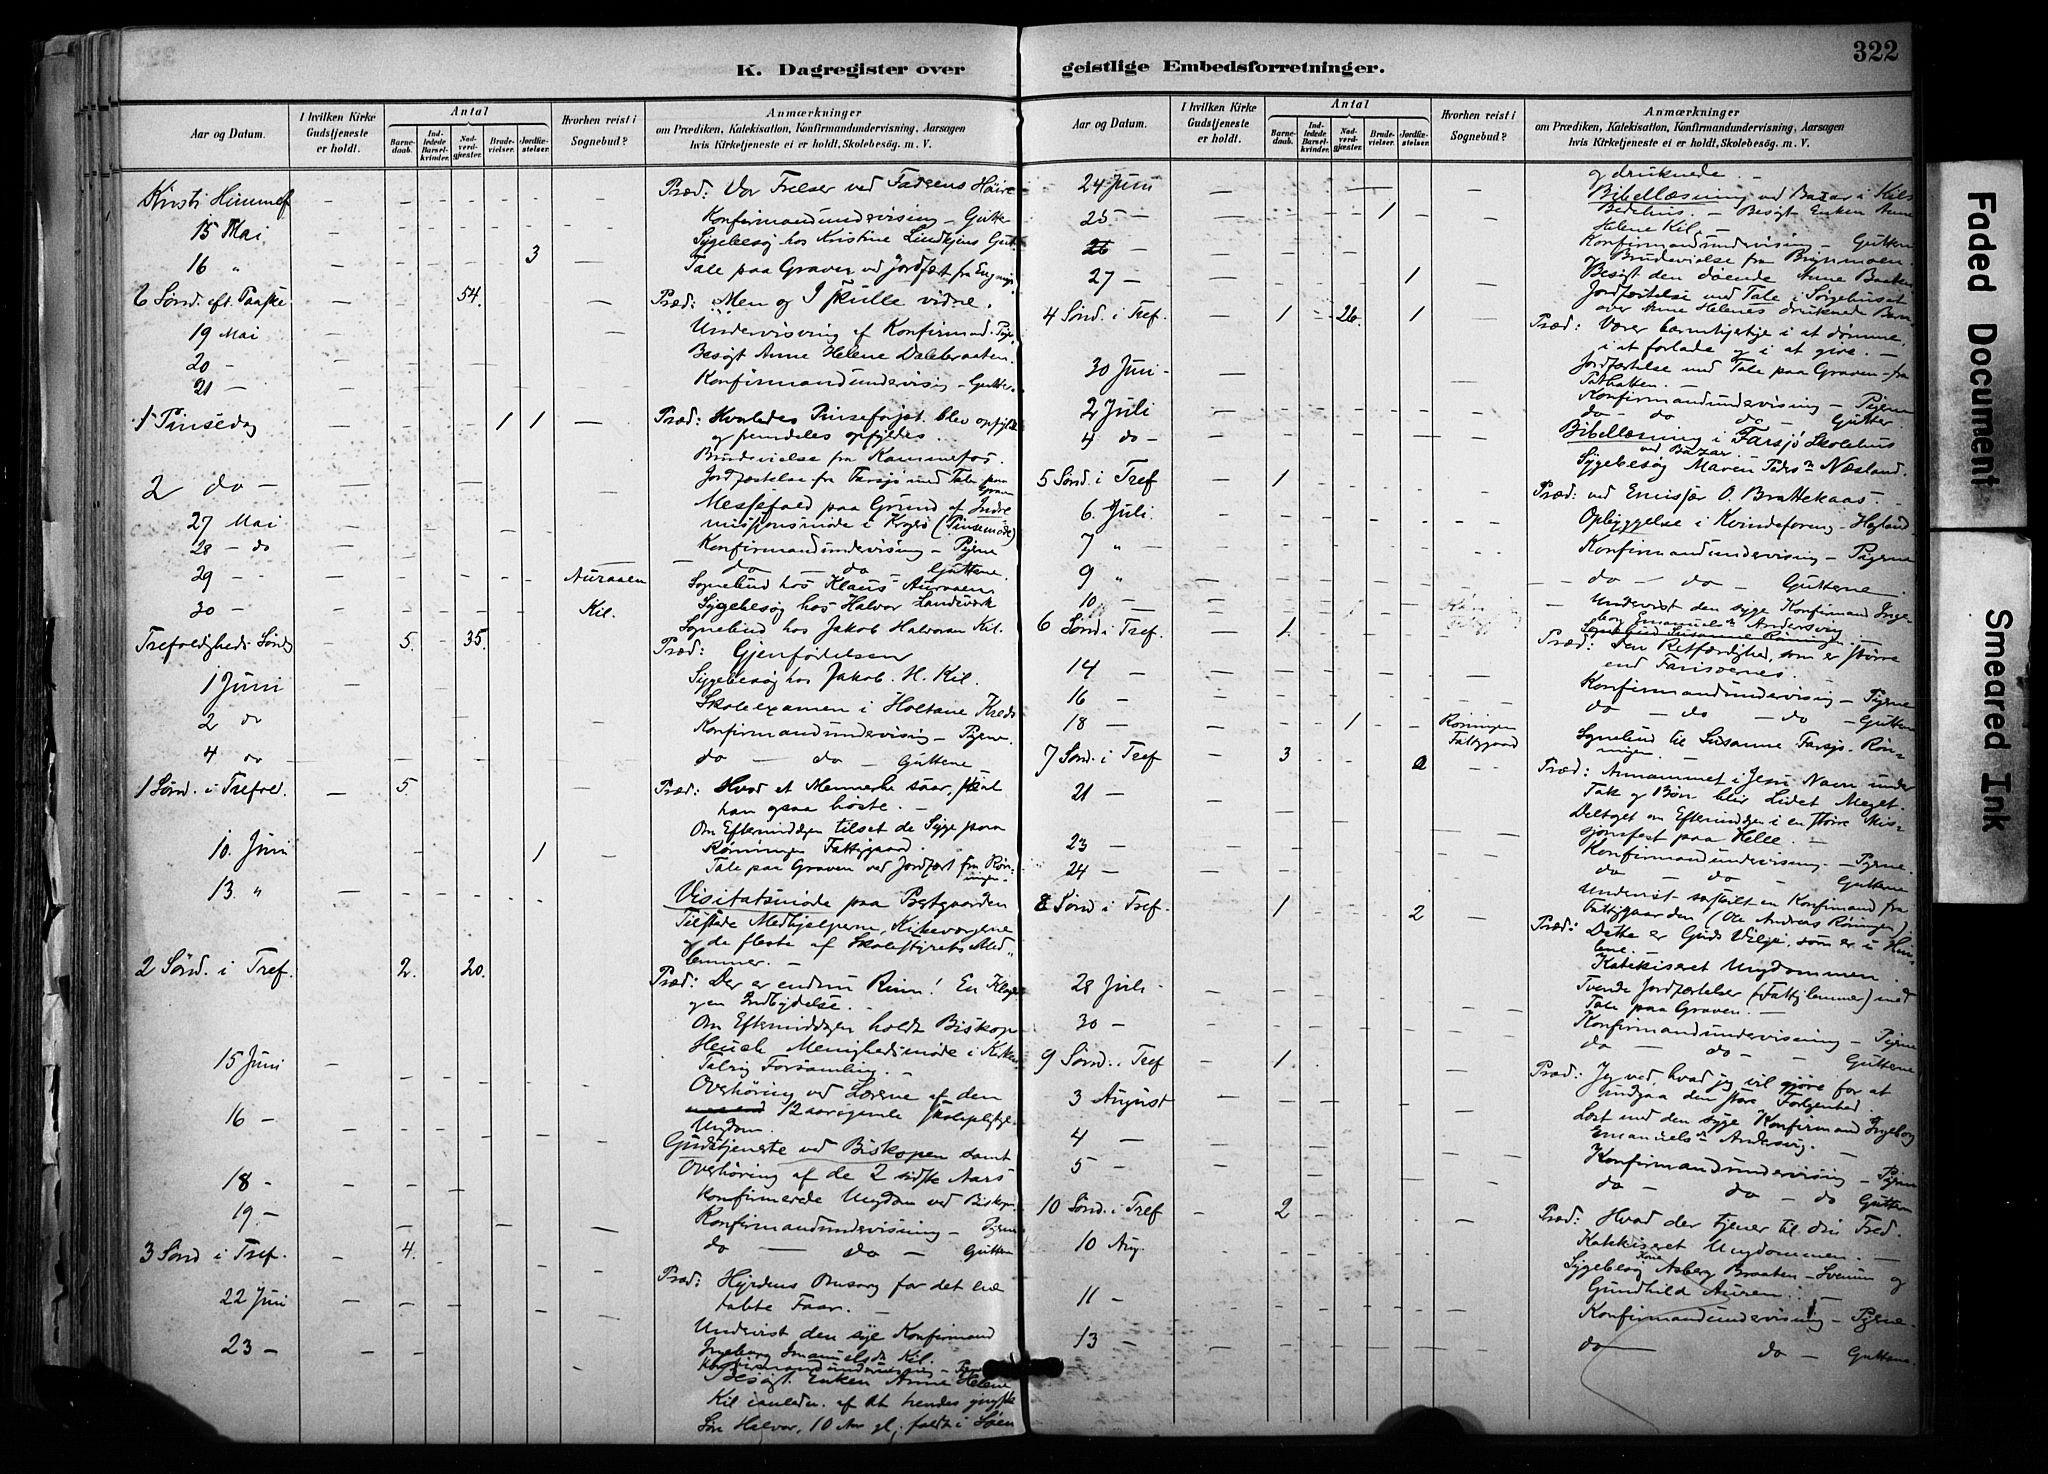 322
K. Dagregister over geistlige Embedsforretninger.
Aar og Datum.
I hvilken Kirke Gudstjeneste er holdt.
Antal
Barnedaab.
Indledede Barselkvinder.
Nadverdgjæster.
Brudevielser.
Jordfæstelser.
Hvorhen reist i Sognebud?
Anmærkninger
om Prædiken, Katekisation, Konfirmandundervisning, Aarsagen
hvis Kirketjeneste ei er holdt, Skolebesøg. m. V.
Kristi Himmelf
Præd: Vor Frelser ved Faderens Høire
15 Mai
Konfirmandundervisning – Gutte
16 " 3
Sygebesøg hos Kristine
Tale paa Graven ved Jordfæst fra
6 Sønd. eft. Paaske 54.
Præd: Men og I skulle vidne.
19 Mai
Undervisning af Konfirmand.
20 –
Besøgt Anne Helene Dalebraaten.
21 –
Konfirmandundervisnig – Gutter.
1 Pinsedag 1 1
Præd: Hvorledes blev opfyldt
og fremdeles opfyldes.
Brudevielse fra Kammerfos.
2 do –
Jordfæstelse fra Farsjø med Tale paa Graven
27 Mai
Messefald paa Grund af Indre
missionsmøde i Kragerø (Pinsemøde)
28 – do
Konfirmandundervisnig – Pigerne
29 – Auraaen
do – do Guttene.
Sognebud hos Klaus Auraaen
30 – Kil.
Sygebesøg hos Halvor Landsverk
Sognebud hos Jakob Halvorsen Kil.
Trefoldigheds Sønd 5. 35.
Præd: Gjenfødelsen
1 Juni
Sygebesøg hos Jakob. H. Kil.
2 do
Skoleexamen i Holtane Kreds
4 do
Konfirmandundervisnig – Pigerne.
do – do – Guttene –
1 Sønd. i Trefol. 5.
Præd: Hvad et Menneske saar, skal
han ogsaa høste. –
Om Eftermiddagen tilset de Syge paa
Rønningen Fattiggaard.
10. Juni 1
Tale paa Graven ved Jordfæst fra Rønningen –
13. "
Visitatsmøde paa Prestgaarden
Tilstede Medhjelperne, Kirkeværgerne
og de fleste af Skolestyrets Med
lemmer. –
2 Sønd. i Tref. 2. 20.
Præd: Der er endnu Rum! En Klage
og en Indbydelse. –
Om Eftermiddagen holdt Biskop
Heuch Menighedsmøde i Kirken
Talrig Forsamling. –
15 Juni
Overhøring ved Lærerne af den
12 aarsgamle skolepligtige
Ungdom.
16 –
Gudstjeneste ved Biskopen samt
Overhøring af de 2 sidste Aars
Konfirmerede Ungdom ved Biskop
18 –
Konfirmandundervisning – Pigerne
19. –
do – do – Gutten
3 Sønd i Tref. 4.
Præd: Hyrdens Omsorg for det ene
tabte Faar. –
22 Juni
Undervist den syge Konfirmand
Ingeborg Emanuelsdr Kil.
23 –
Konfirmandundervisning –
Besøgt Enken Anne Helene
Kil af at hendes yngste
Søn Halvor, 10 Aar gl. faldt i Søen
og druknede. –
24 Juni
Bibellæsning ved Bazar i Kils
Bedehus. – Besøgt Enken Anne
Helene Kil. –
25 – 1
Konfirmandundervisning – Guttene
26
Brudevielse fra
27 – 1
Besøgt den døende Anne Braaten
Jordfæstelse med Tale i Sørgehuset
over Anne Helenes druknede Barn
4 Sønd. i Tref. 1 26. 1
Præd: Værer barmhjertige i at dømme,
i at forlade og i at give. –
Jordfæstelse med Tale paa Graven – fra
30 Juni –
Konfirmandundervisning – Pigerne
2 Juli
do – do do – Gutter.
4 do –
Bibellæsning i Farsjø Skolehus
ved Bazar. –
Sygebesøg Maren Næsland.
5 Sønd. i Tref 1
Præd: ved Emissær O. Brattekaas –
6. Juli.
Opbyggelse i Kvindeforeng –
7 " –
Konfirmandundervisning – Pigerne
9 "
– do – do – Guttene
10 –
Undervist den syge Konfirmand Inge
borg Emanuelsdr Andersvig
Sognebud Susanne Rønningen
6 Sønd i Tref. 1.
Præd: Den Retfærdighed, som er større
end Farisæernes. –
14 –
Konfirmandundervisnig – Pigerne
16 –
do – do – do – Gutten
18 – 1 Rønningen Fattiggaard
Sognebud til Susanne Farsjø. Røn-
ningen. –
7 Sønd. i Tref 3 2
Præd: Annammet i Jesu Navn under
Tak og Bøn blir Lidet Meget.
21 –
Deltaget om Eftermiddagen i en større Mis-
sjonsfest paa Helle. –
23 –
Konfirmandundervisning – Pigerne.
24 –
do – do – Guttene
Undervist særskilt en Konfirmand fra
Fattiggaarden (Ole Andreas Røningen)
8 Sønd i Tref. 1 2
Præd: Dette er Guds Vilje, som er i Him-
lene.
Katekiseret Ungdommen
Tvende Jordfæstelser (Fattiglemmer) med
Tale paa Graven. –
28 Juli –
Konfirmandundervisning – Pigerne
30 –
do – do – Guttene
9 Sønd. i Tref 1
Præd: Jeg ved, hvad jeg vil gjøre for at
undgaa den store Forlegenhed.
3 August
Læst med den syge Konfirmand Ingeborg
Emanuelsdr Andersvig.
4 –
Konfirmandundervisning – Pigerne
5 –
do – do – do Gutten
10 Sønd. i Tref 2
Præd: Hvad der tjener til din Fred.
Katekiseret Ungdommen. –
10 Aug.
Sygebesøg Kone Asberg Braaten – og
Gundhild
11 –
Konfirmandundervisning – Pigerne.
13 –
do – do – Guttene.
Faded Document
Smeared Ink